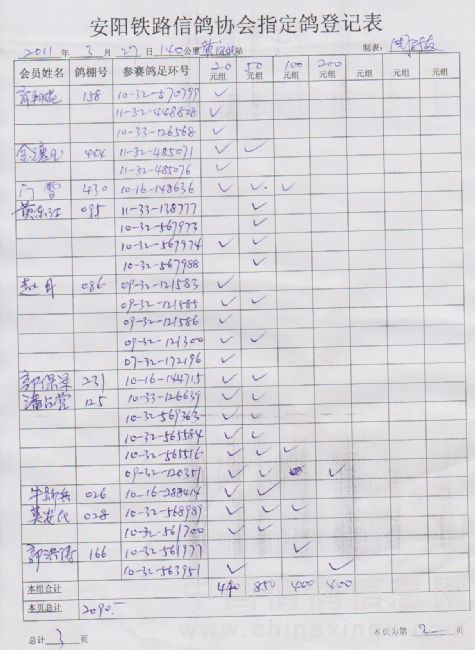 安阳铁路信鸽协会指定鸽登记表
2011 年 3 月 27 日 140公里 站 制表:
会员姓名 鸽棚号 参赛鸽足环号 20元组 50元组 100元组 200元组 元组 元组 元组 元组
158 10-32-570799 ✓
11-32-448808 ✓
10-33-126568 ✓
444 11-32-485071 ✓ ✓
11-32-485076 ✓
门雪 430 10-16-148636 ✓ ✓ ✓
黄东江 095 11-33-138777 ✓
10-32-567973 ✓
10-32-567974 ✓ ✓
10-32-567988 ✓
赵丹 086 09-32-121583 ✓
09-32-121585 ✓ ✓
09-32-121586 ✓
09-32-121300 ✓ ✓
07-32-172196 ✓
郭保梁 231 10-16-144715 ✓ ✓
潘占营 125 10-33-126639 ✓ ✓
10-32-569363 ✓ ✓
10-32-565584 ✓ ✓
10-32-565516 ✓ ✓ ✓
09-32-120351 ✓ ✓ ✓
026 10-16-288414 ✓ ✓
028 10-32-568989 ✓ ✓
10-32-561700 ✓ ✓
166 10-32-561977 ✓
10-32-563951 ✓ ✓
本组合计 440 850 400 400
本页总计 2090.-
总计 3 页 本页为第 2 页